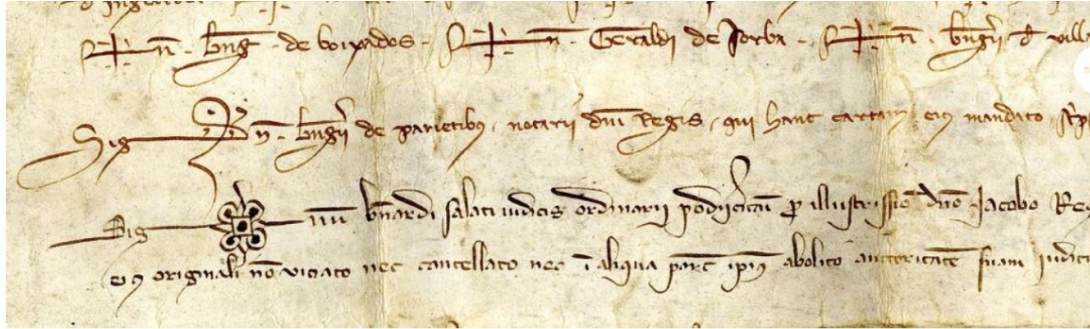 S+n. bng. de boixados. S+n. Geraldi de Jorba. S+n. bngrii d vill
Sig n. bngrii de parietibus. notarii dni Regis. qui hanc cartam eius mandato
Sig num bnardi salati iudicis ordinarii podiicitani p illustrissio dno Jacobo Re
eius originali no viciato nec cancellato nec i aliqua parte ipius abolito auctoritate suam iudici